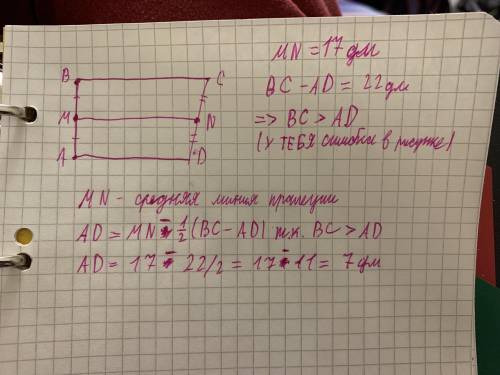 MN = 17 дм
BC - AD = 22 дм
=> BC > AD
(у тебя ошибка в рисунке)
B C
M N
A D
MN - средняя линия трапеции
AD = MN - 1/2 (BC - AD) т.к. BC > AD
AD = 17 - 22/2 = 17 - 11 = 7 дм